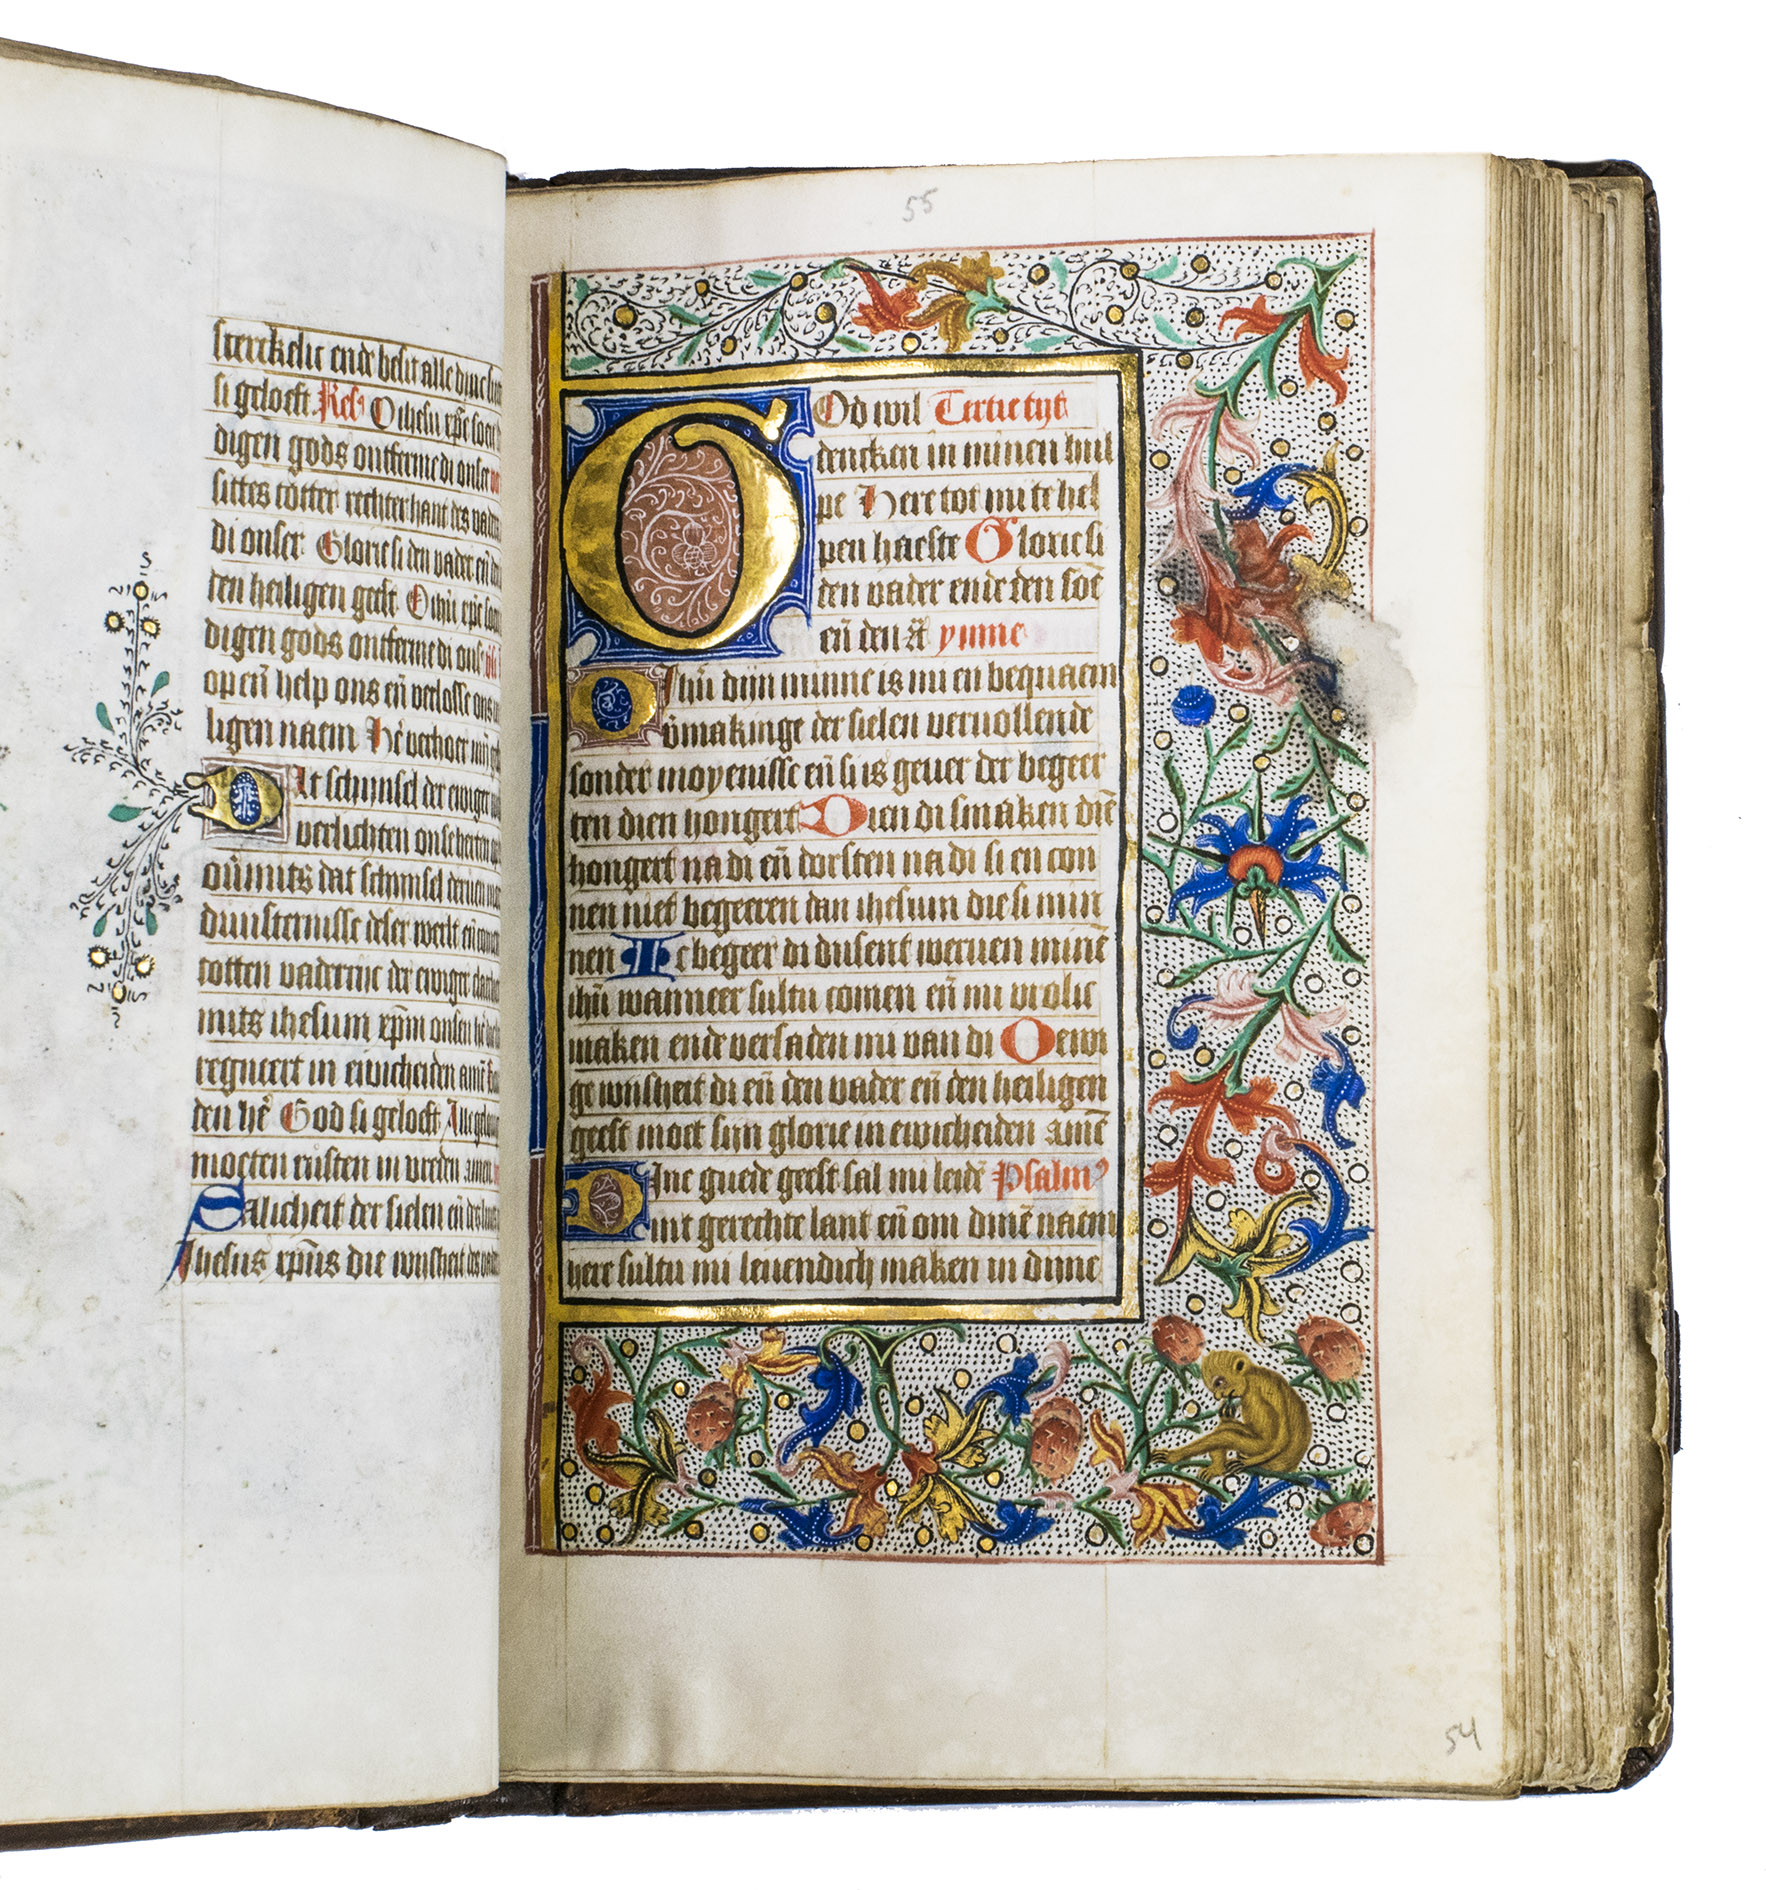 sterckelic ende besit alle dine
si geloeft. Res' O ihesu xpe
digen gods ontferme di onser
sittes totter rechter hant des
di onser Glorie si den vader eñ
den heiligen geest O ihu xpe
digen gods ontferme di ons
op eñ help ons eñ verlosse ons
ligen naem Hē verhoer
Dat schijnsel der ewiger
verlichten onse herten
ouermits dat schijnsel
duusternisse deser werlt eñ
totten vaderric der ewiger
mits ihesum xpm onsen
regneert in ewicheiden amē
den hē God si geloeft
moeten rusten in vreden amen
Salicheit der sielen eñ
Ihesus xpus die wijsheit des
55
God wil Tercie tijt
dencken in minen hul
pe Here tot mi te hel
pen haeste Glorie si
den vader ende den soē
eñ den ymne
O ihu dijn minne is mi en bequaem
vmakinge der sielen vervollende
sonder moyenisse eñ si is geuer der begeer
ten dien hongert Dien di smaken diē
hongert na di eñ dorsten na di si en con
nen niet begeeren dan ihesum die si min
nen Ic begeer di dusent weruen minē
ihu wanneer sultu comen eñ mi vrolic
maken ende versaden mi van di O ewi
ge wijsheit di eñ den vader eñ den heiligen
geest moet sijn glorie in ewicheiden amē
Dine guede geest sal mi leidē Psalm'
int gerechte lant eñ om dinē naem
here sultu mi leuendich maken in dine
54